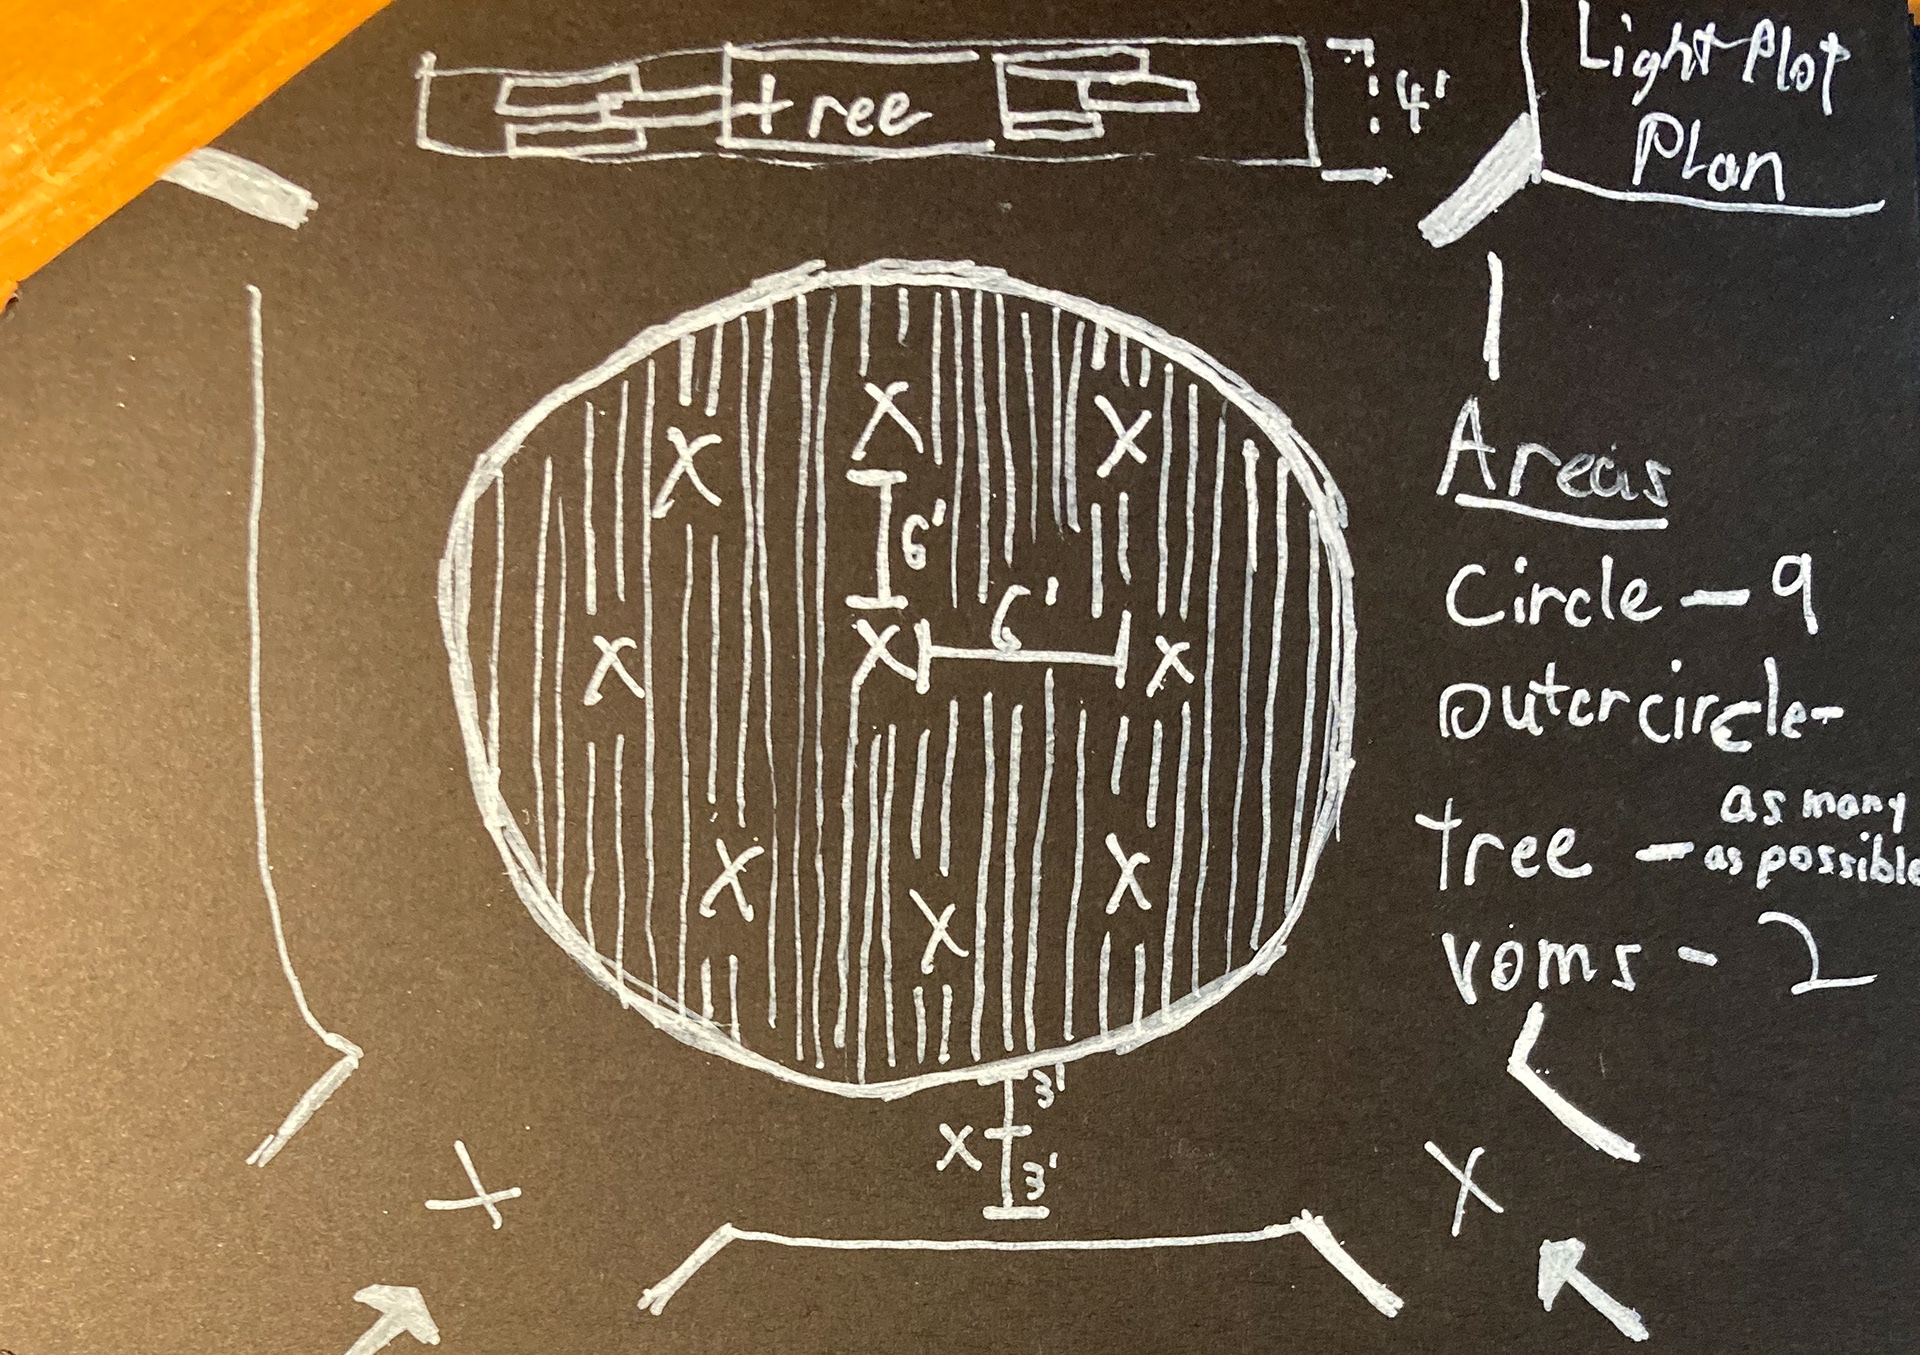 Light Plot
Plan
tree
4'
X
X
X
6'
6'
X
X
X
X
X
X
3'
X
3'
X
X
Areas
Circle - 9
outercircle-
tree - as many
as possible
voms - 2